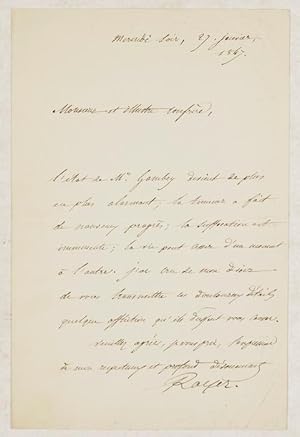 Mercredi Soir, 27. Janvier,
1847.
Monsieur et illustre Confrère,
L'état de Mr. Gambey devient de plus
en plus alarmant; la tumeur a fait
de nouveaux progrès; la suffocation est
imminente; la vie peut cesser d'un moment
à l'autre. j'ai cru de mon devoir
de vous transmettre ces douloureux détails
quelque affliction qu'ils dussent vous causer.
Veuillez agréer, je vous prie, l'expression
de mon respectueux et profond dévouement
Rayer.